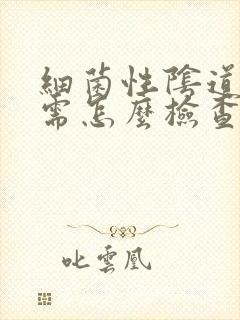 細菌性陰道
需怎麼檢查
叱雲凰